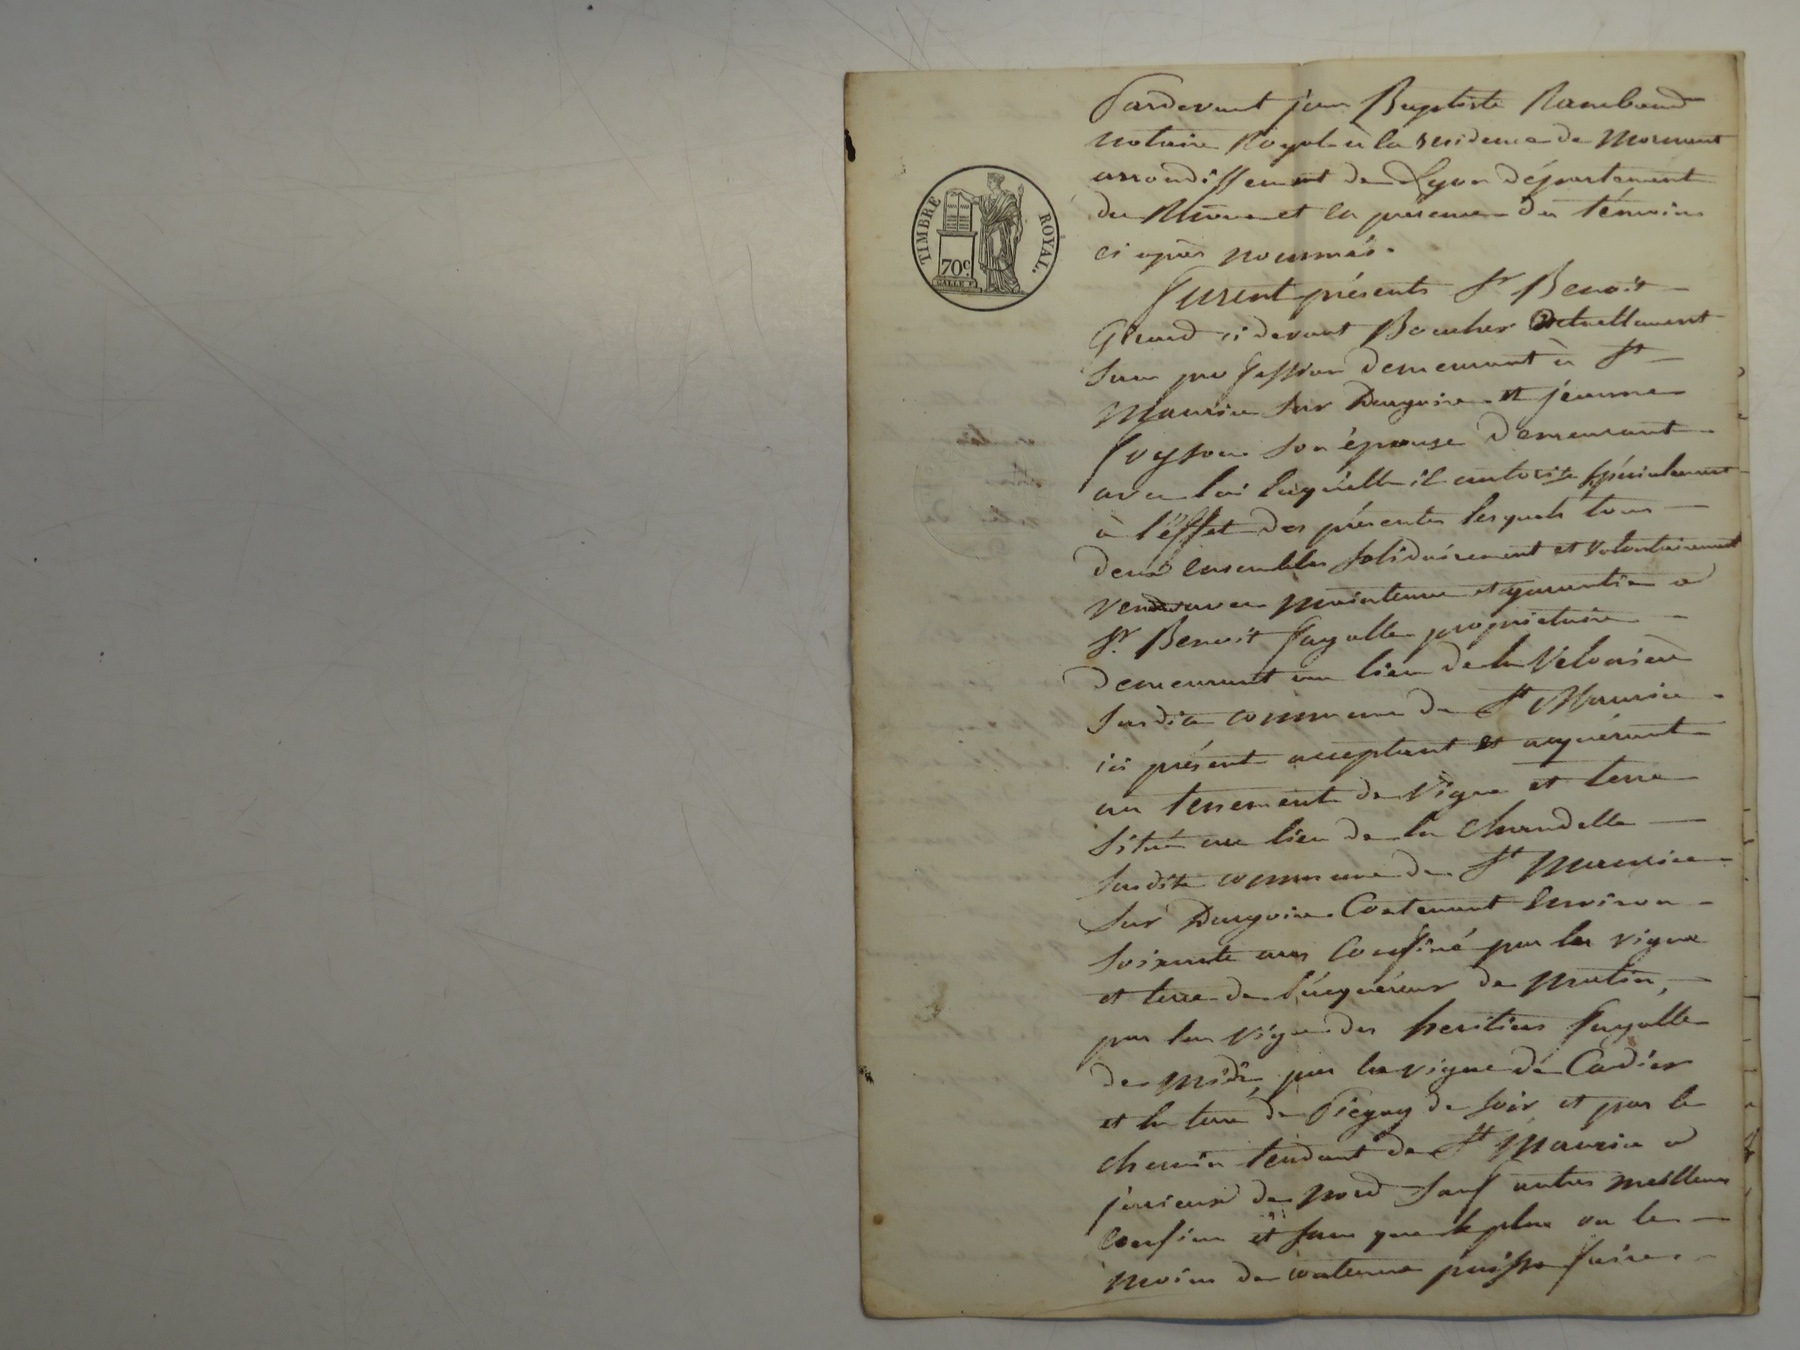 TIMBRE ROYAL.
70c.
Pardevant jean Baptiste Rambaud
notaire Royal à la residence de Mornant
arrondissement de Lyon département
du Rhône et en presence des témoins
ci après nommés.
Furent présents Sr Benoit
Girard ci devant Boucher actuellement
sans profession demeurant à St
Maurice sur Dargoire et jeanne
son épouse demeurant
avec lui laquelle il autorise spécialement
à l'effet des présentes lesquels tous
deux ensembles solidairement et volontairement
vendent avec maintenue et garantie a
Sr. Benoit Fayolle propriétaire
demeurant au lieu de la
susdite commune de St Maurice
ici présent acceptant et acquérant
un tenement de vigne et terre
situé au lieu de la Chandelle
susdite commune de St Maurice
sur Dargoire Contenant Environ
soixante ares Confiné par les vigne
et terre de l'acquéreur de matin,
par la vigne des heritiers Fayolle
de midi, par la vigne de Cadier
et la terre de Piegay de soir et par le
chemin tendant de St Maurice a
jurieux de nord sauf autres meilleurs
confins et sans que le plus ou le
moins de contenue puisse faire